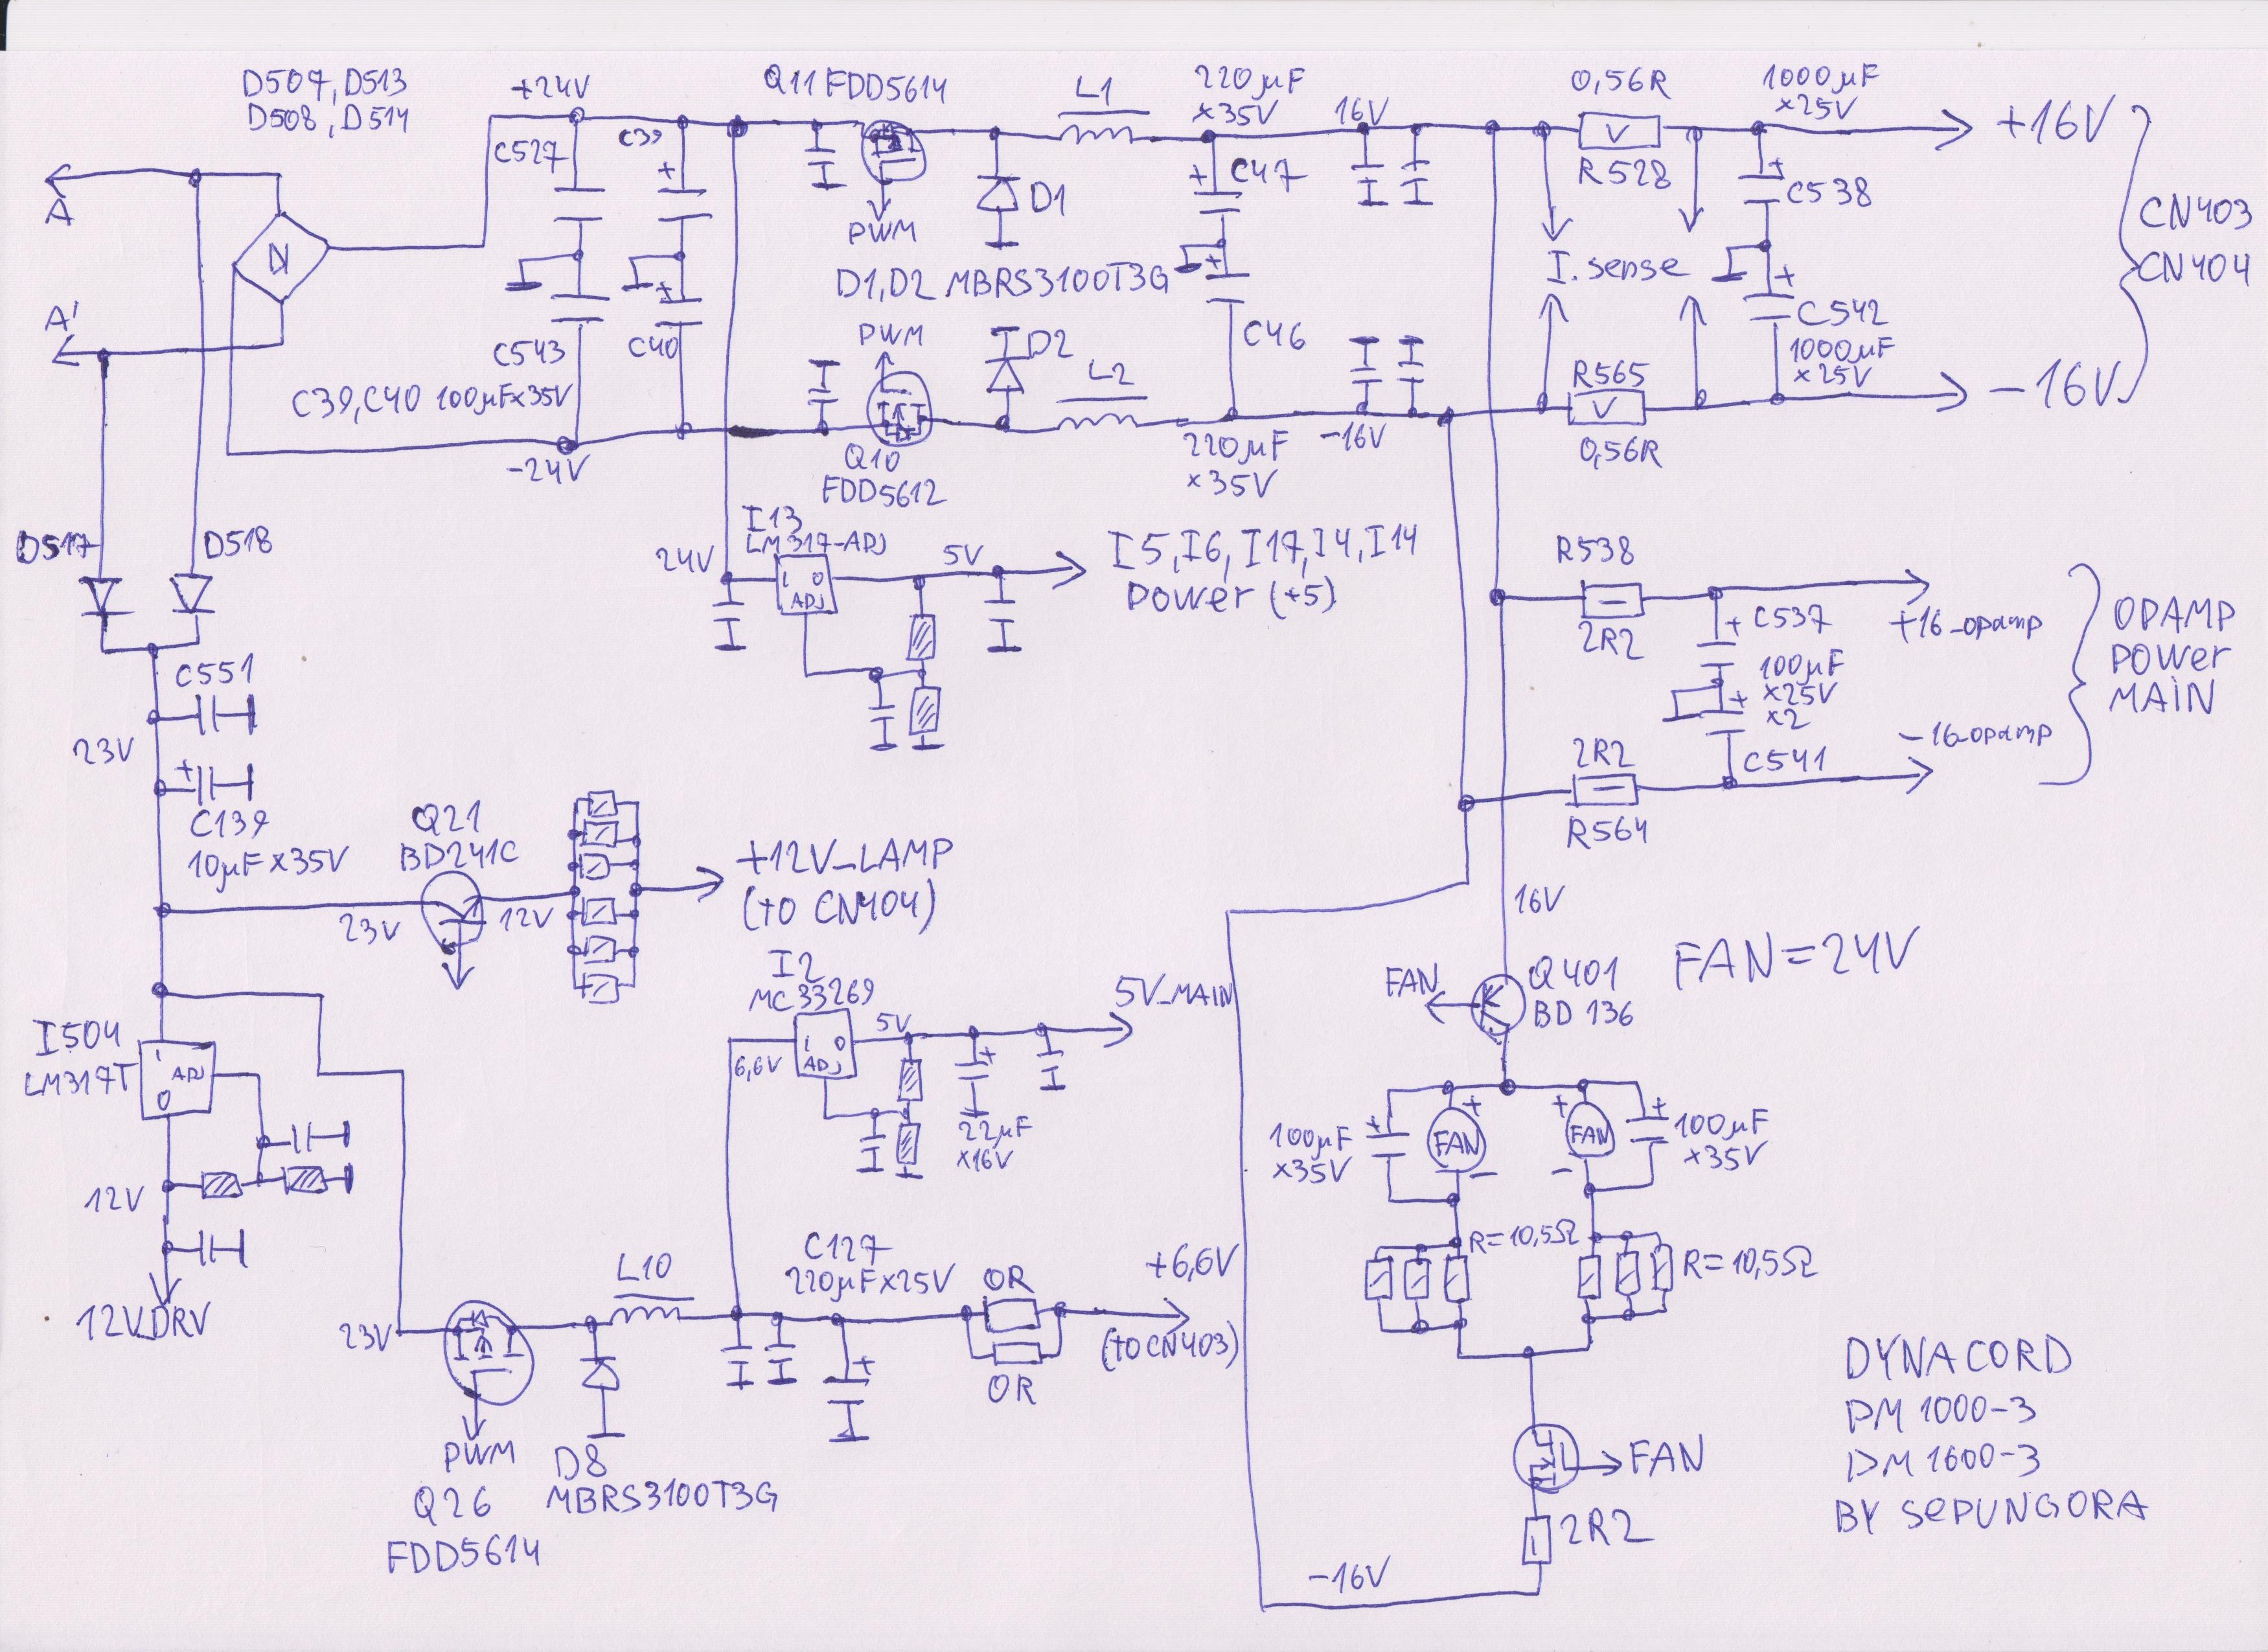 D507, D513
D508, D514
+24V
Q11 FDD5614
L1
220µF
x35V
16V
0,56R
1000µF
x25V
+16V
C527
C39
A
PWM
D1
C47
V
R528
C538
CN403
CN404
D1, D2 MBRS3100T3G
I.sense
A'
C543
C40
PWM
D2
C46
L2
C542
1000µF
x25V
R565
V
C39, C40 100µFx35V
-24V
Q10
FDD5612
220µF
x35V
-16V
0,56R
-16V
D517
D518
24V
I13
LM317-ADJ
I O
ADJ
5V
I5, I6, I17, I4, I14
Power (+5)
R538
2R2
+16_opamp
C537
100µF
x25V
x2
OPAMP
POWer
MAIN
-16_opamp
2R2
R564
C541
C551
23V
C139
10µF x35V
Q21
BD241C
23V
12V
+12V_LAMP
(to CN404)
16V
FAN
Q401
BD 136
FAN=24V
I504
LM317T
I
ADJ
O
12V
12V_DRV
I2
MC33269
6,6V
I O
ADJ
5V
5V_MAIN
22µF
x16V
100µF
x35V
FAN
FAN
100µF
x35V
R=10,5Ω
R=10,5Ω
23V
PWM
Q26
FDD5614
L10
D8
MBRS3100T3G
C127
220µFx25V
0R
0R
+6,6V
(to CN403)
FAN
2R2
-16V
DYNACORD
PM 1000-3
PM 1600-3
BY SePUNGORA